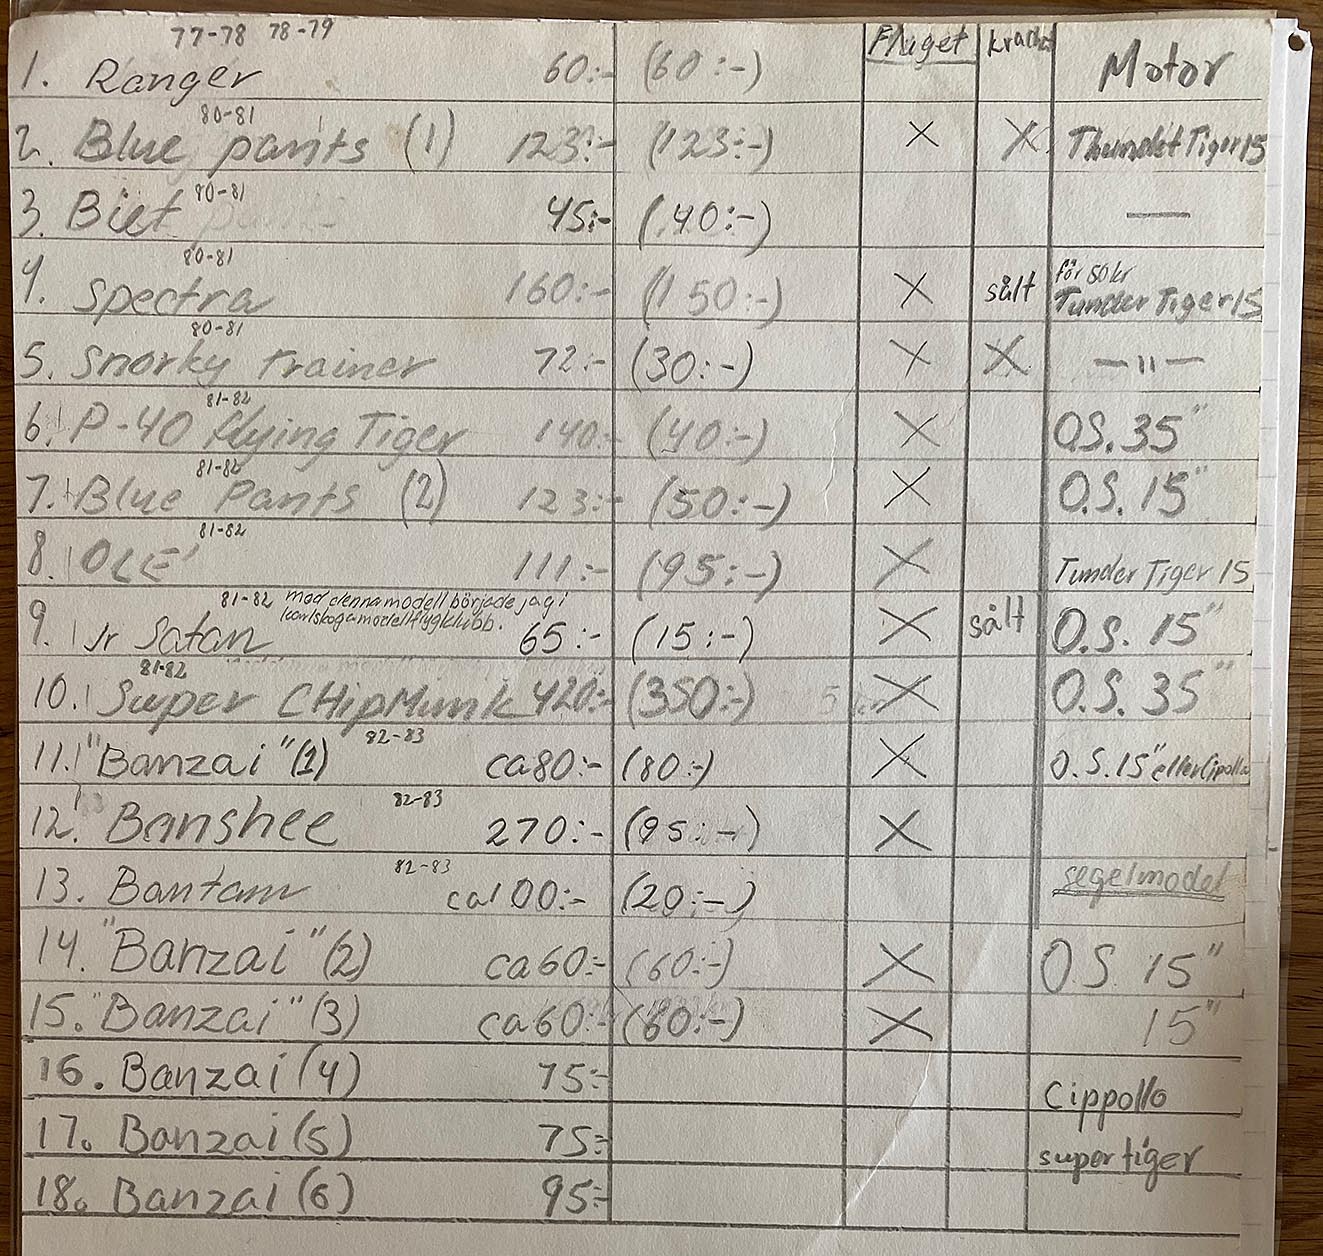 77-78 78-79
1. Ranger 60:- (60:-) Fluget Motor
80-81
2. Blue pants (1) 123:- (123:-) X X Tiger 15
80-81
3. Biet 45:- (40:-) —
80-81
4. Spectra 160:- (150:-) X sålt för sökr Tunder Tiger 15
80-81
5. Snorky trainer 72:- (30:-) X X —"—
81-82
6. P-40 flying Tiger 140:- (40:-) X O.S. 35"
81-82
7. Blue Pants (2) 123:- (50:-) X O.S. 15"
81-82
8. OLE' 111:- (95:-) X Tunder Tiger 15
81-82 med denna modell började jag i
karlskoga modellflygklubb.
9. Jr Satan 65:- (15:-) X sålt O.S. 15"
81-82
10. Super CHipMunk 420:- (350:-) X O.S. 35"
82-83
11. "Banzai" (1) ca 80:- (80:-) X O.S. 15" eller Cipolla
82-83
12. Banshee 270:- (95:-) X
82-83
13. Bantam ca 100:- (20:-) segelmodel
14. "Banzai" (2) ca 60:- (60:-) X O.S. 15"
15. "Banzai" (3) ca 60:- (60:-) X 15"
16. Banzai (4) 75:- Cippollo
17. Banzai (5) 75:- super tiger
18. Banzai (6) 95:-